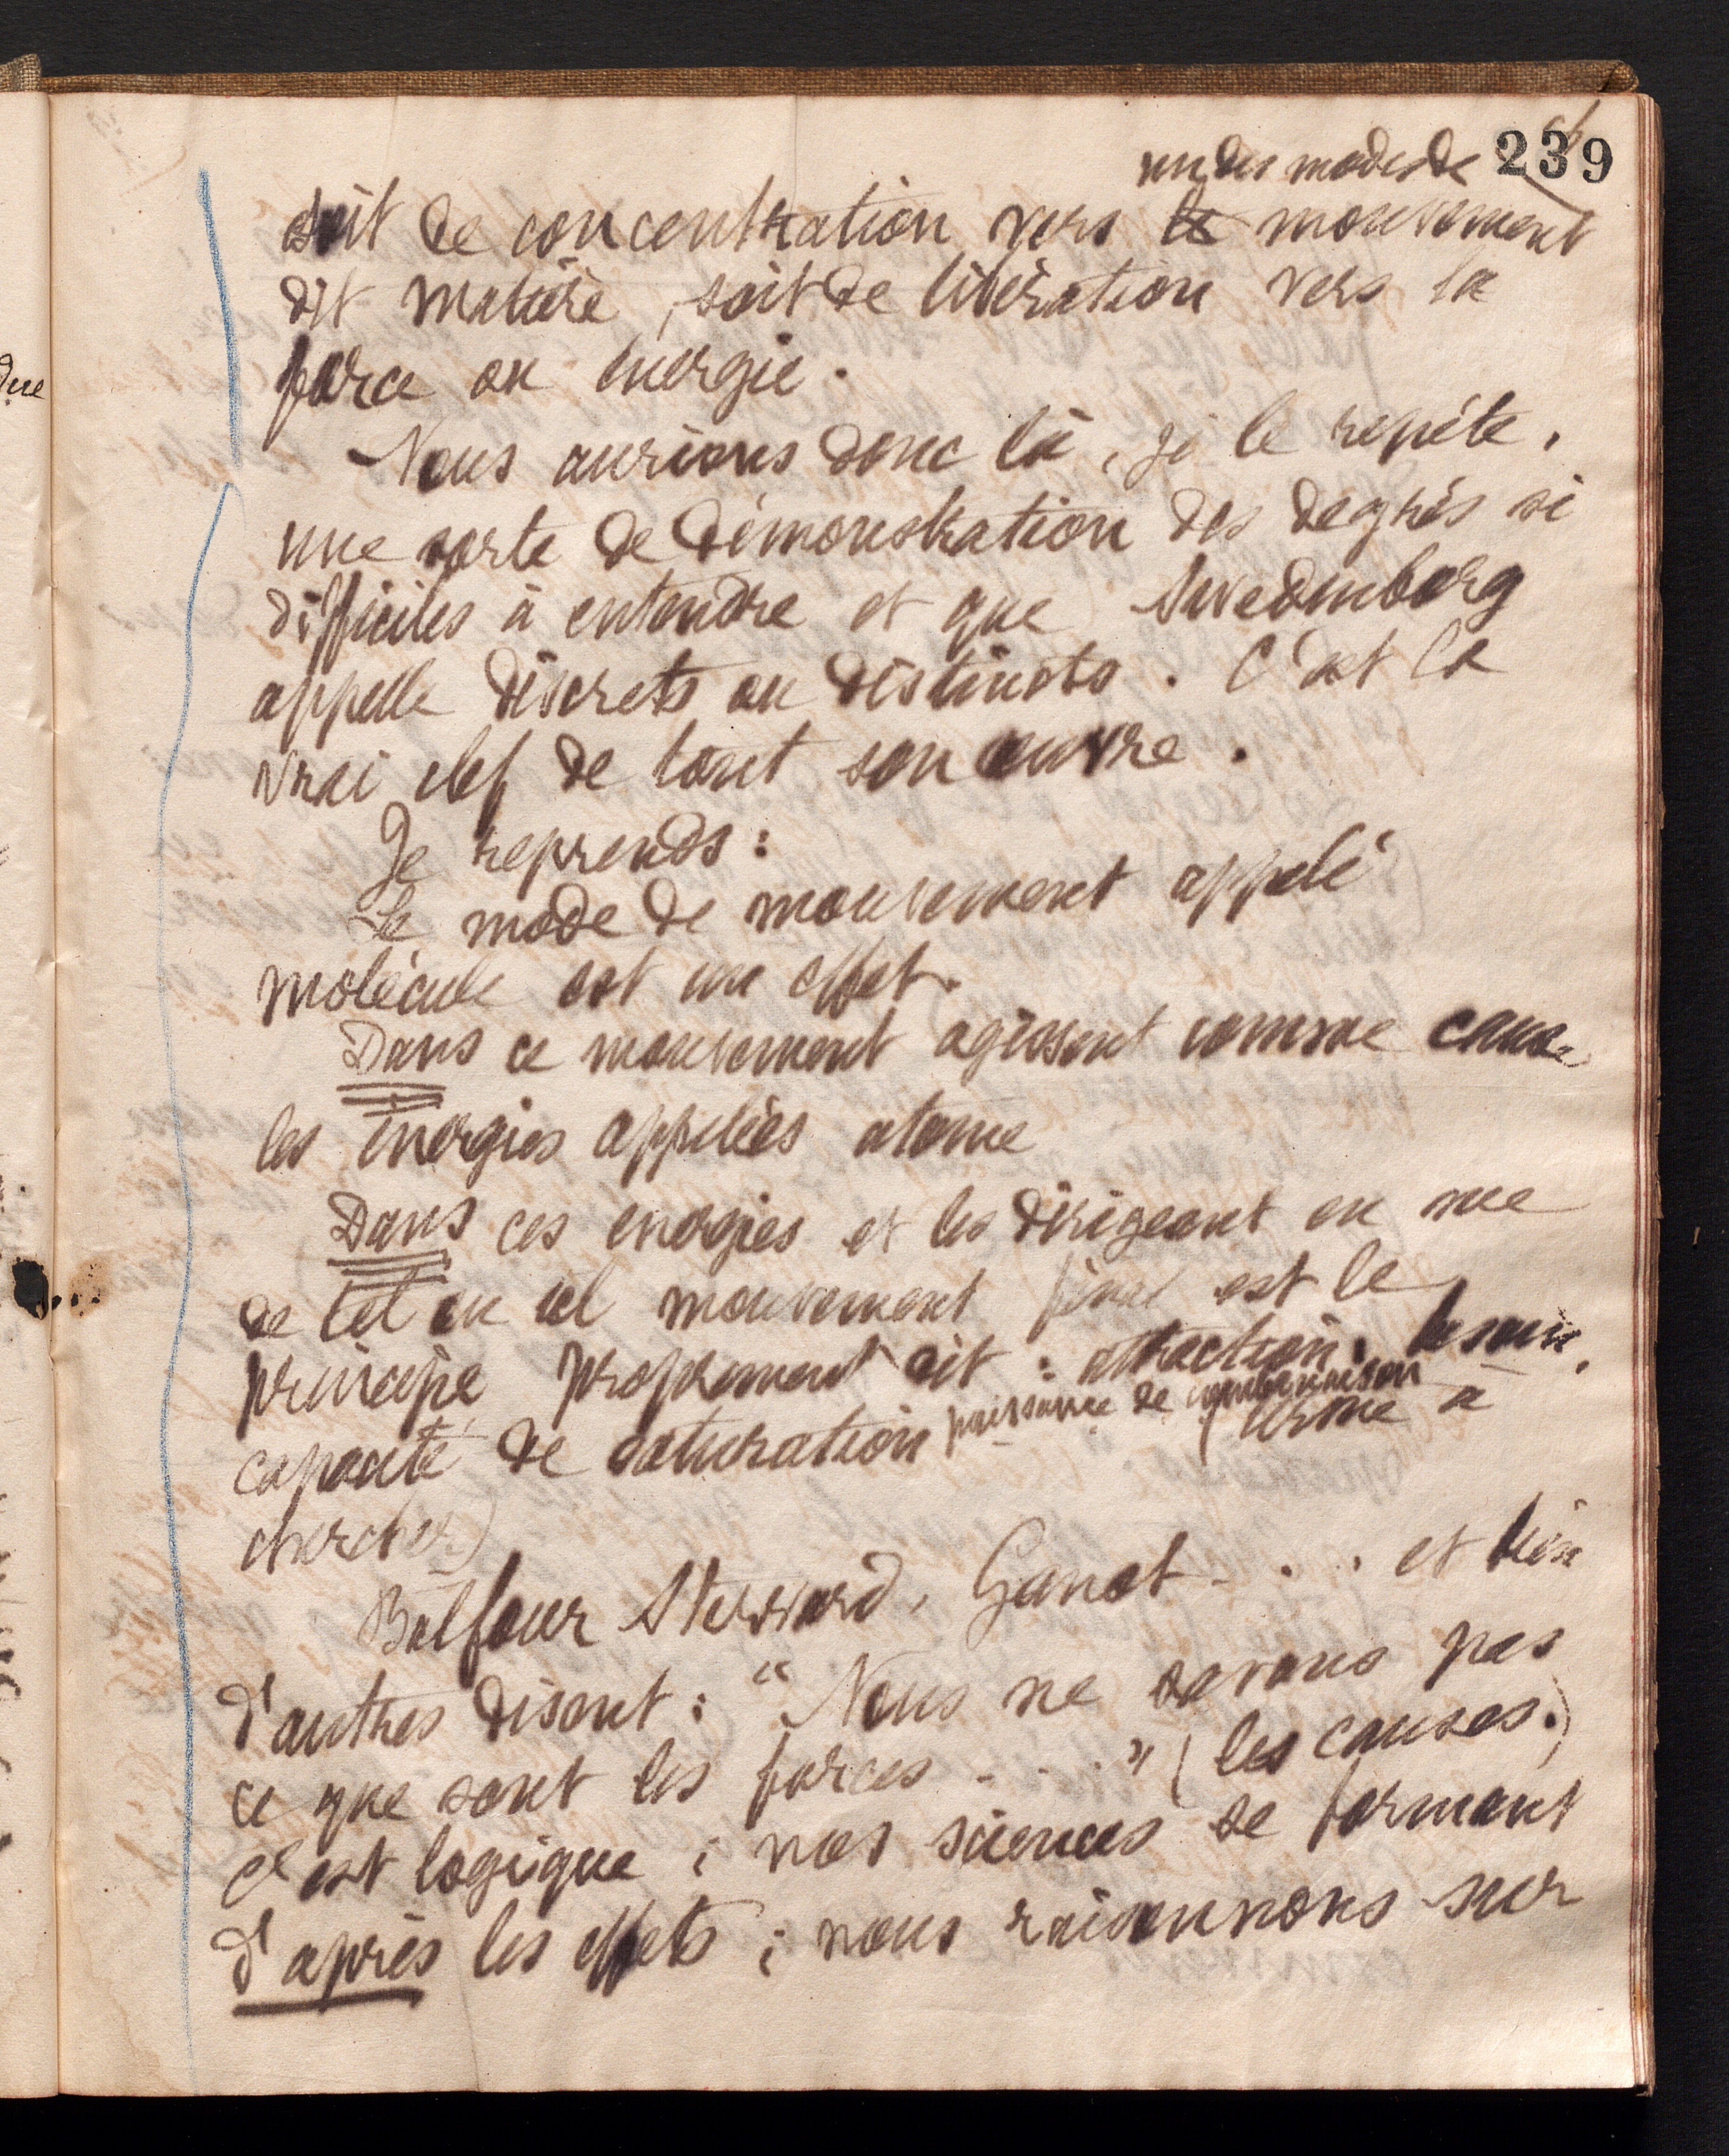 239
un des modes de
soit de concentration vers le mouvement
dit matière, soit de libération vers la
force ou énergie.
Nous aurions donc là, je le repète,
une sorte de démonstration des degrés si
difficiles à entendre et que Swedenborg
appelle discrets ou distincts. C'est la
vrai clef de tout son œuvre.
Je reprends:
Le mode de mouvement appelé
molécule est un effet.
Dans ce mouvement agissent comme cause
les énergies appelées atome
Dans ces energies et les dirigeant en vue
de tel ou tel mouvement final est le
principe proprement dit: attraction, besoin,
puissance de combinaison
capacité de saturation (terme à
chercher)
Balfour Steward, Ganot . . . et bien
d'autres disent: "Nous ne savons pas
ce que sont les forces . . . " (les causes.)
C'est logique; nos sciences se formant
d'après les effets; nous raisonnons sur